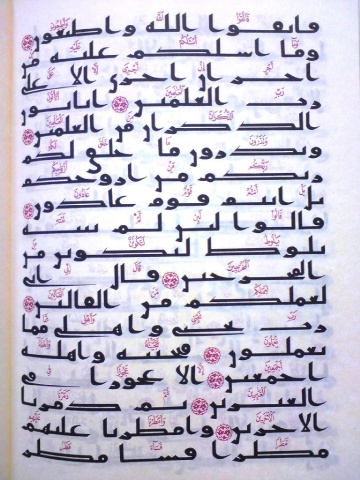 فاتقوا الله واطيعون
وما اسلكم عليه من
اجر ان اجري الا على
رب العلمين اتاتون
الذكران من العلمين
وتذرون ما خلق لكم
ربكم من ازوجكم
بل انتم قوم عادون
قالوا لئن لم تنته
يلوط لتكونن من
المخرجين قال اني
لعملكم من القالين
رب نجني واهلي مما
يعملون فنجينه واهله
اجمعين الا عجوزا في
الغبرين ثم دمرنا
الاخرين وامطرنا عليهم
مطرا فسا مطر